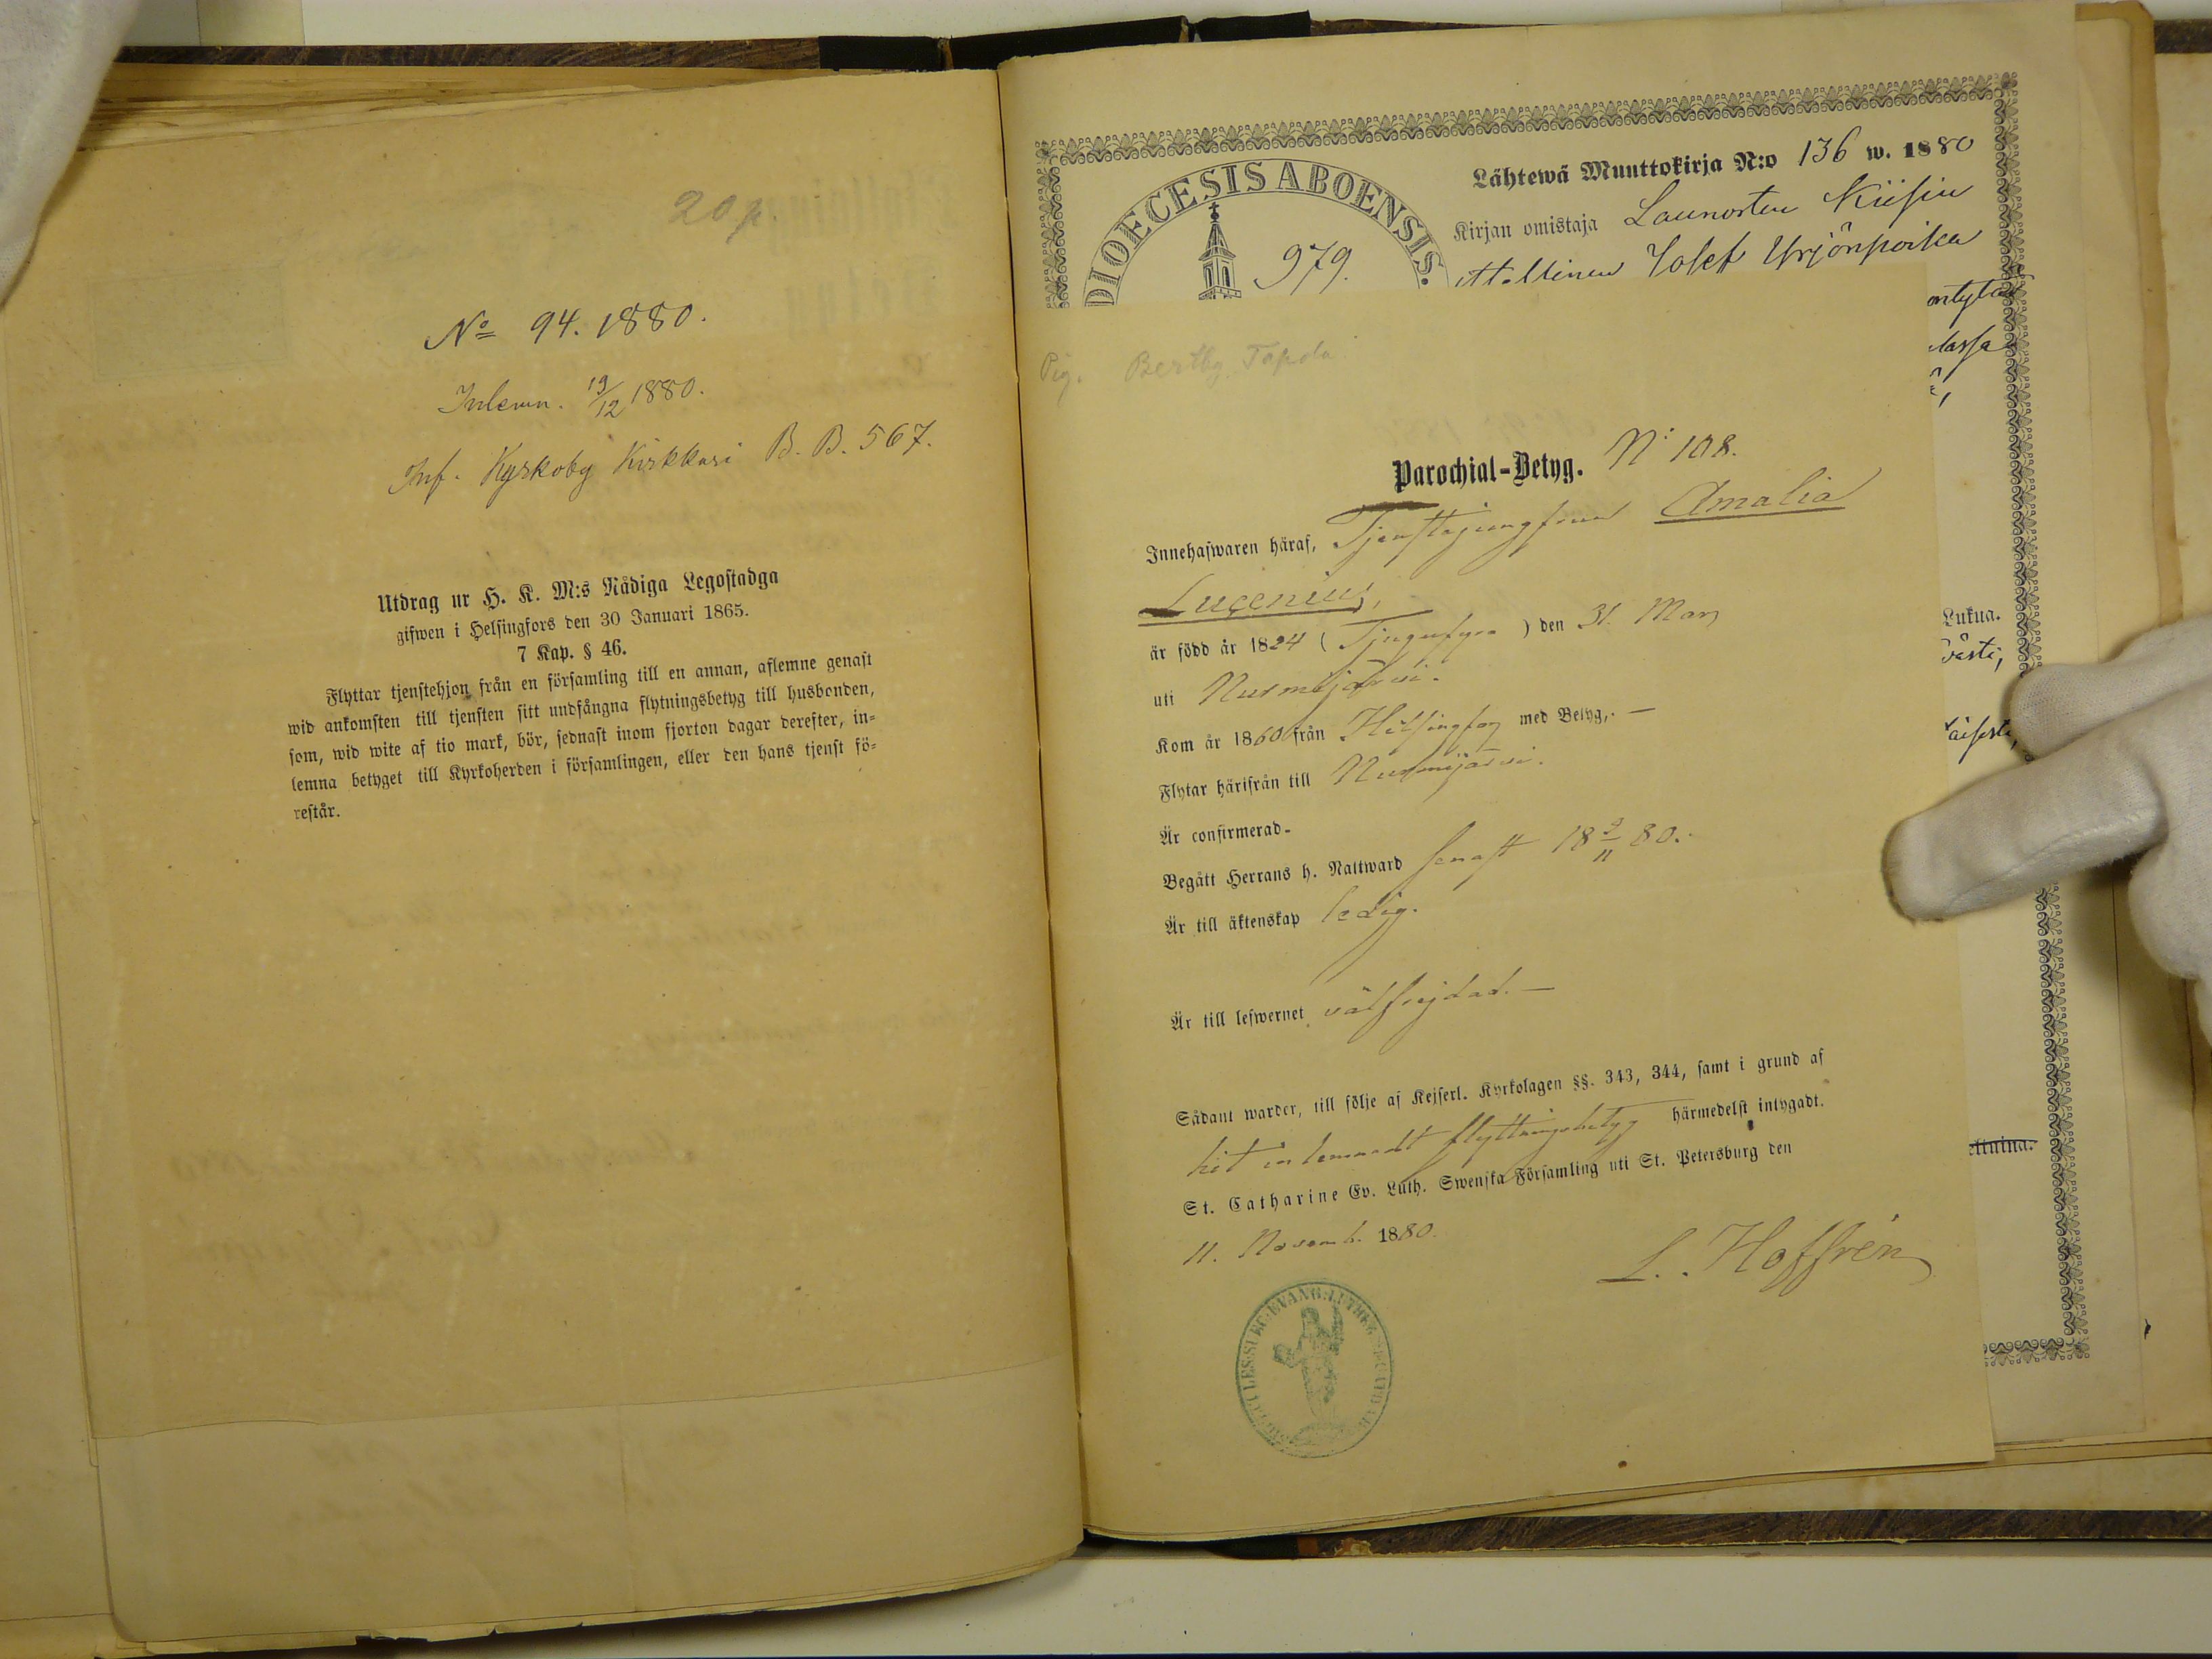 20 p.
No 94. 1880.
Inlemn. 19/12 1880.
Inf. Kyrkoby Kirkkari B. B. 567.
Utdrag ur H. K. M:s Nådiga Legostadga
gifwen i Helsingfors den 30 Januari 1865.
7 Kap. § 46.
Flyttar tjenstehjon från en församling till en annan, aflemne genast
wid ankomsten till tjensten sitt undfångna flytningsbetyg till husbonden,
som, wid wite af tio mark, bör, sednast inom fjorton dagar derefter, in=
lemna betyget till Kyrkoherden i församlingen, eller den hans tjenst fö=
restår.
DIOECESIS ABOENSIS.
979.
Lähtewä Muuttokirja N:o 136 w. 1880
Kirjan omistaja Launosten Kiisin
Josef Yrjönpoika
Pig. Bertby Tapola
Parochial-Betyg. N: 108.
Innehafwaren häraf, Tjenstejungfrun Amalia
Lugenius,
är född år 1824 (Tjugufyra) den 31. Mars
uti Nurmijärvi.
Kom år 1860 från Helsingfors med Betyg,. —
Flytar härifrån till Nurmijärvi.
Är confirmerad-
Begått Herrans h. Nattward senast 18 2/11 80.
Är till äktenskap ledig.
Är till lefwernet välfrejdad. —
Sådant warder, till följe af Kejserl. Kyrkolagen §§. 343, 344, samt i grund af
hit inlemnadt flyttningsbetyg härmedelst intygadt.
St. Catharine Ev. Luth. Swenska Församling uti St. Petersburg den
11. Novemb. 1880.
L. Hoffrén
Lukua.